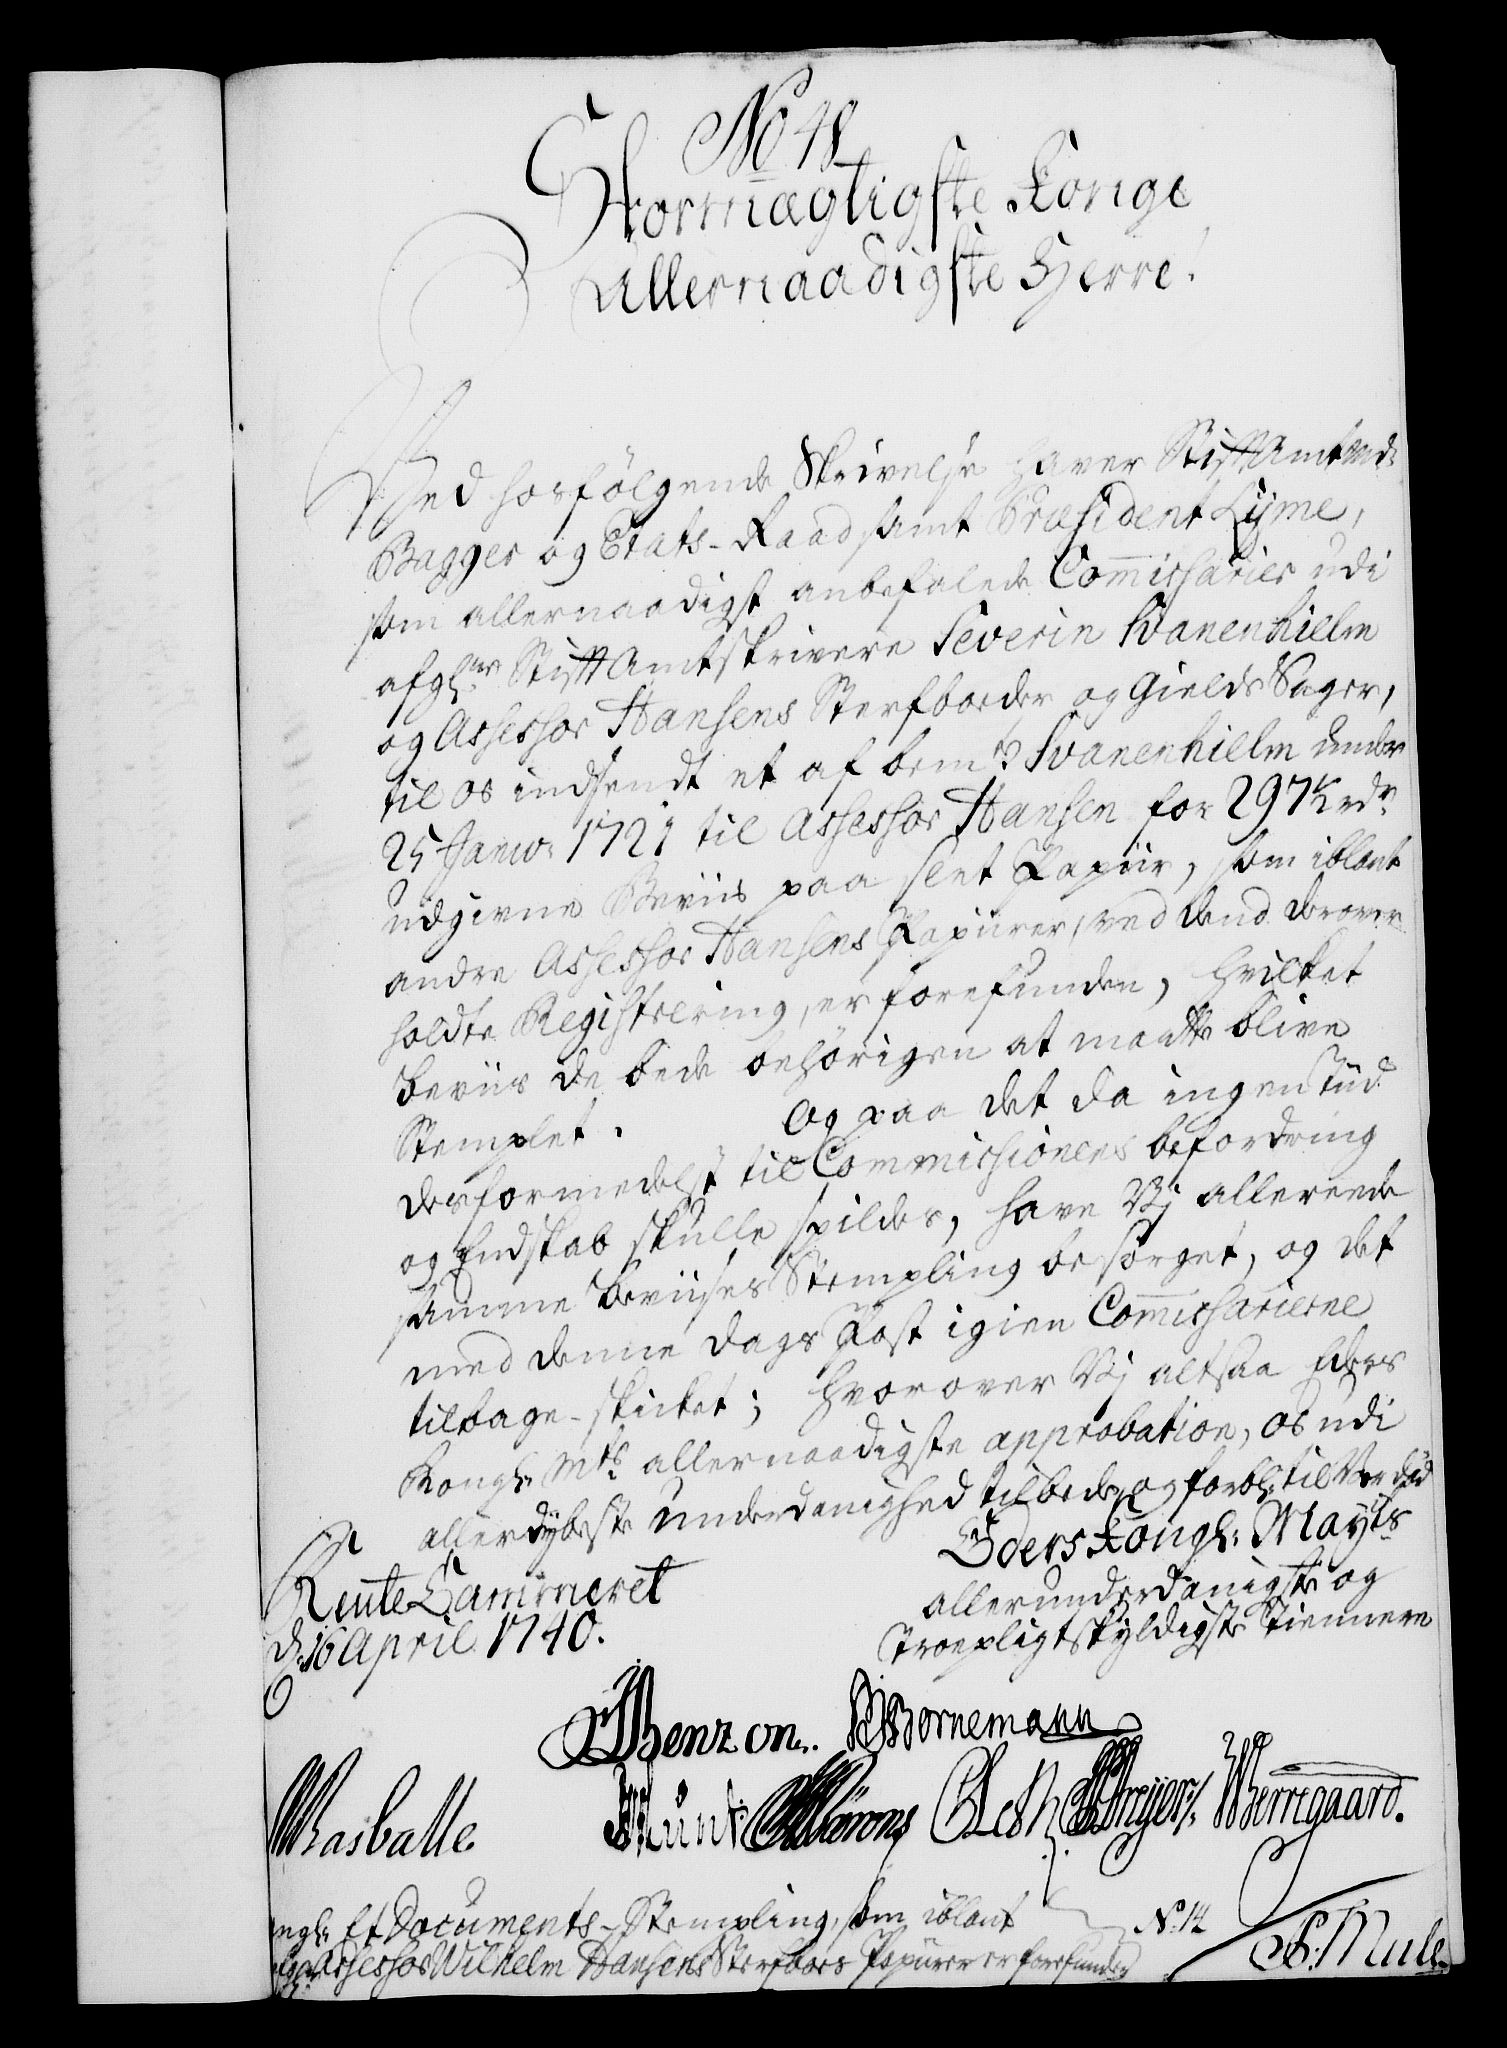 No 48
Stormægtigste Konge
Allernaadigste Herre!
Ved hosfölgende Skrivelse haver StiftAmtmd:
Bagger og Etats-Raad samt Præsident Lyme,
som allernaadigst anbefalede Commissarier udi
afgl: StiftAmtskrivere Severin Svanenhielm
og Assessor Hansens Sterfboeder og Gields Sager,
til os indsendt et af bem:te Svanenhielm under
25 Janv: 1721 til Assessor Hansen for 297½ rdr
udgivne Beviis paa slet Papiir, som iblant
andre Assessor Hansens Papiirer, ved dend derover
holdte Registrering, er forefunden, hvilket
beviis de bede behörigen at maatte blive
Stemplet. Og paa det da ingen Tiid
desformedelst til Commissionens befordring
og Endskab skulle spildes, have Vj allereede
samme beviises Stempling besörget, og det
med denne dags Post igien Commissarierne
tilbage-skicket; hvorover Vj altsaa Eders
Kongl: Mts allernaadigste approbation, os udi
allerdybeste underdanighed tilbede, og forbl: til Vor död
Eders Kongl: Mayts
allerunderdanigste og
Troepligtskyldigste Tiennere
Rente Cammeret
d: 16 April 1740.
Benzon. Bornemann
Rasballe. Münt Kärens CLeth Dreyer Werregaard.
angl: Et Documents-Stempling, som iblant No. 14
Assessor Wilhelm Hansens Sterfboes Papiirer er forefunden
S. Mule.